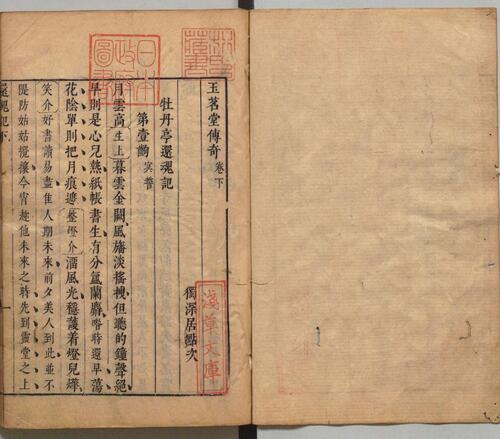 玉茗堂傳奇 卷下
獨深居點次
牡丹亭還魂記
第壹齣 冥誓
月雲高生上暮雲金闕風旛淡搖拽但聽的鐘聲絕
早則是心兒熱紙帳書生有分氳蘭麝咱時還早蕩
花陰單則把月痕遮整燈介溜風光穩護着燈兒燁
笑介好書讀易盡佳人期未來前夕美人到此並不
隄防姑姑攪攘今宵趁他未來之時先到雲堂之上
還魂記下
日本
政府
圖書
淺草文庫
林氏
藏書